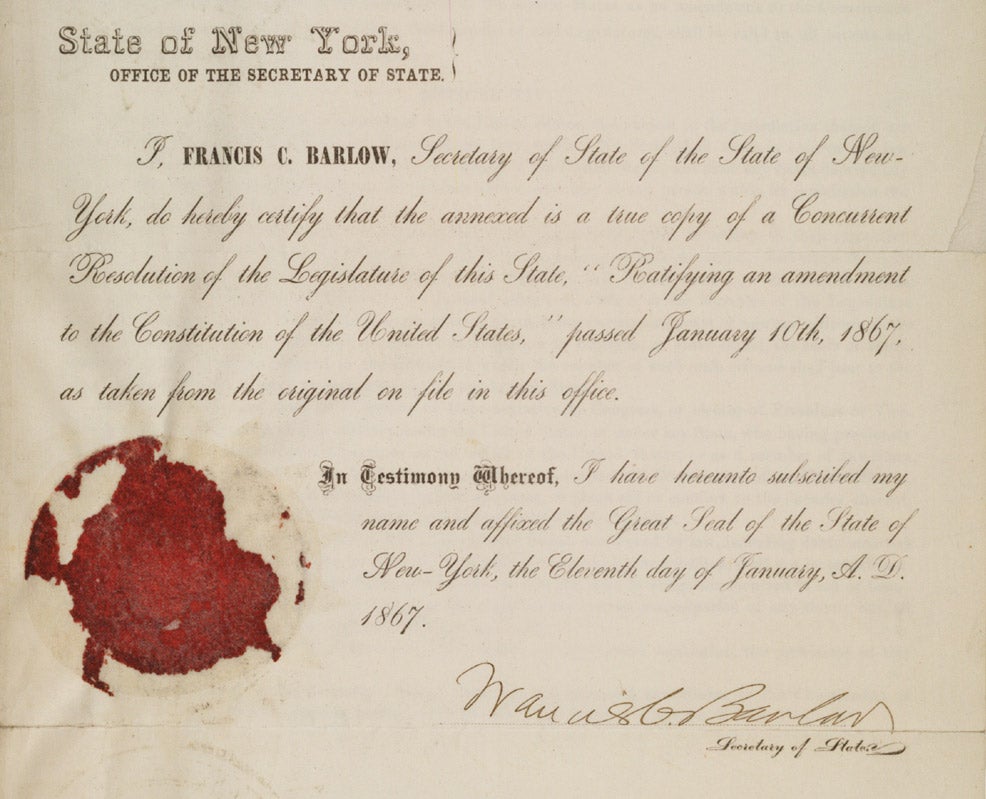 State of New York,
OFFICE OF THE SECRETARY OF STATE.
I, FRANCIS C. BARLOW, Secretary of State of the State of New-
York, do hereby certify that the annexed is a true copy of a Concurrent
Resolution of the Legislature of this State, "Ratifying an amendment
to the Constitution of the United States," passed January 10th, 1867,
as taken from the original on file in this office.
In Testimony Whereof, I have hereunto subscribed my
name and affixed the Great Seal of the State of
New-York, the Eleventh day of January, A. D.
1867.
Francis C. Barlow
Secretary of State.